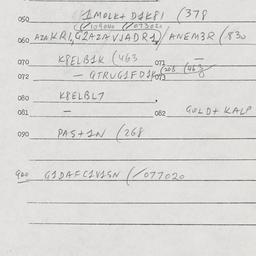 050 1MOLK+ D1KPI (378
(/109040 (/073020
060 AZAKRI,G1AZAVJADR1)/ANEM3R (830
070 KPELB1K (463 071 —
072 — GTRUG1FD1K 073 (203 (463
080 KPELBL7
081 — 082 GOLD+ KALP
090 PAS+1N (268
900 G1DAFC1V1GN (/077020